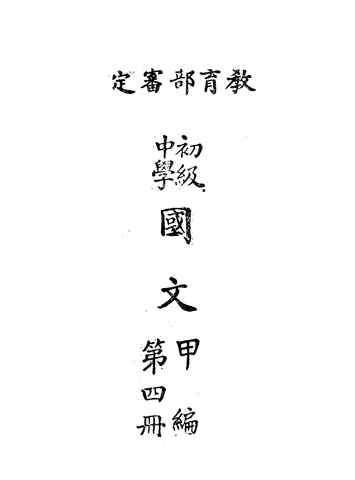 教育部審定
初級
中學
國文
甲編
第四冊